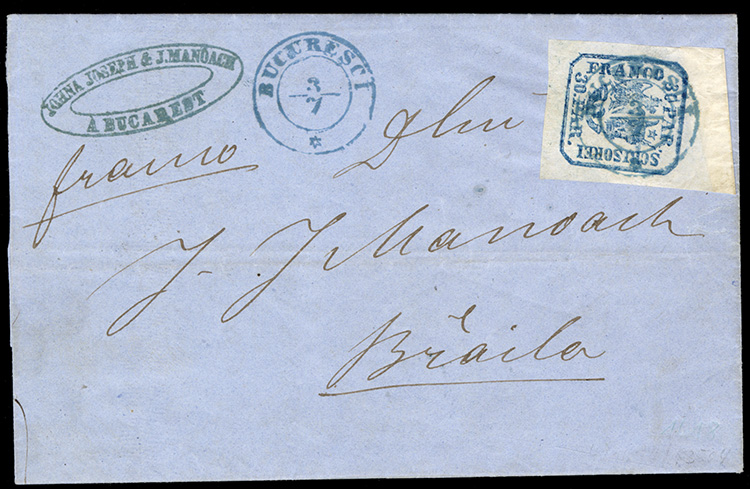 JOHNA JOSEPH & J. MANOACH
A BUCAREST
BUCURESCI
3/7
FRANCO 30 PAR.
SCRISOREI
30. PAR.
franco
J. J Manoach
Brăila